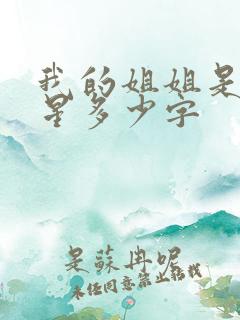 我的姐姐是
星多少字
是蘇冉呢
未经同意禁止转载